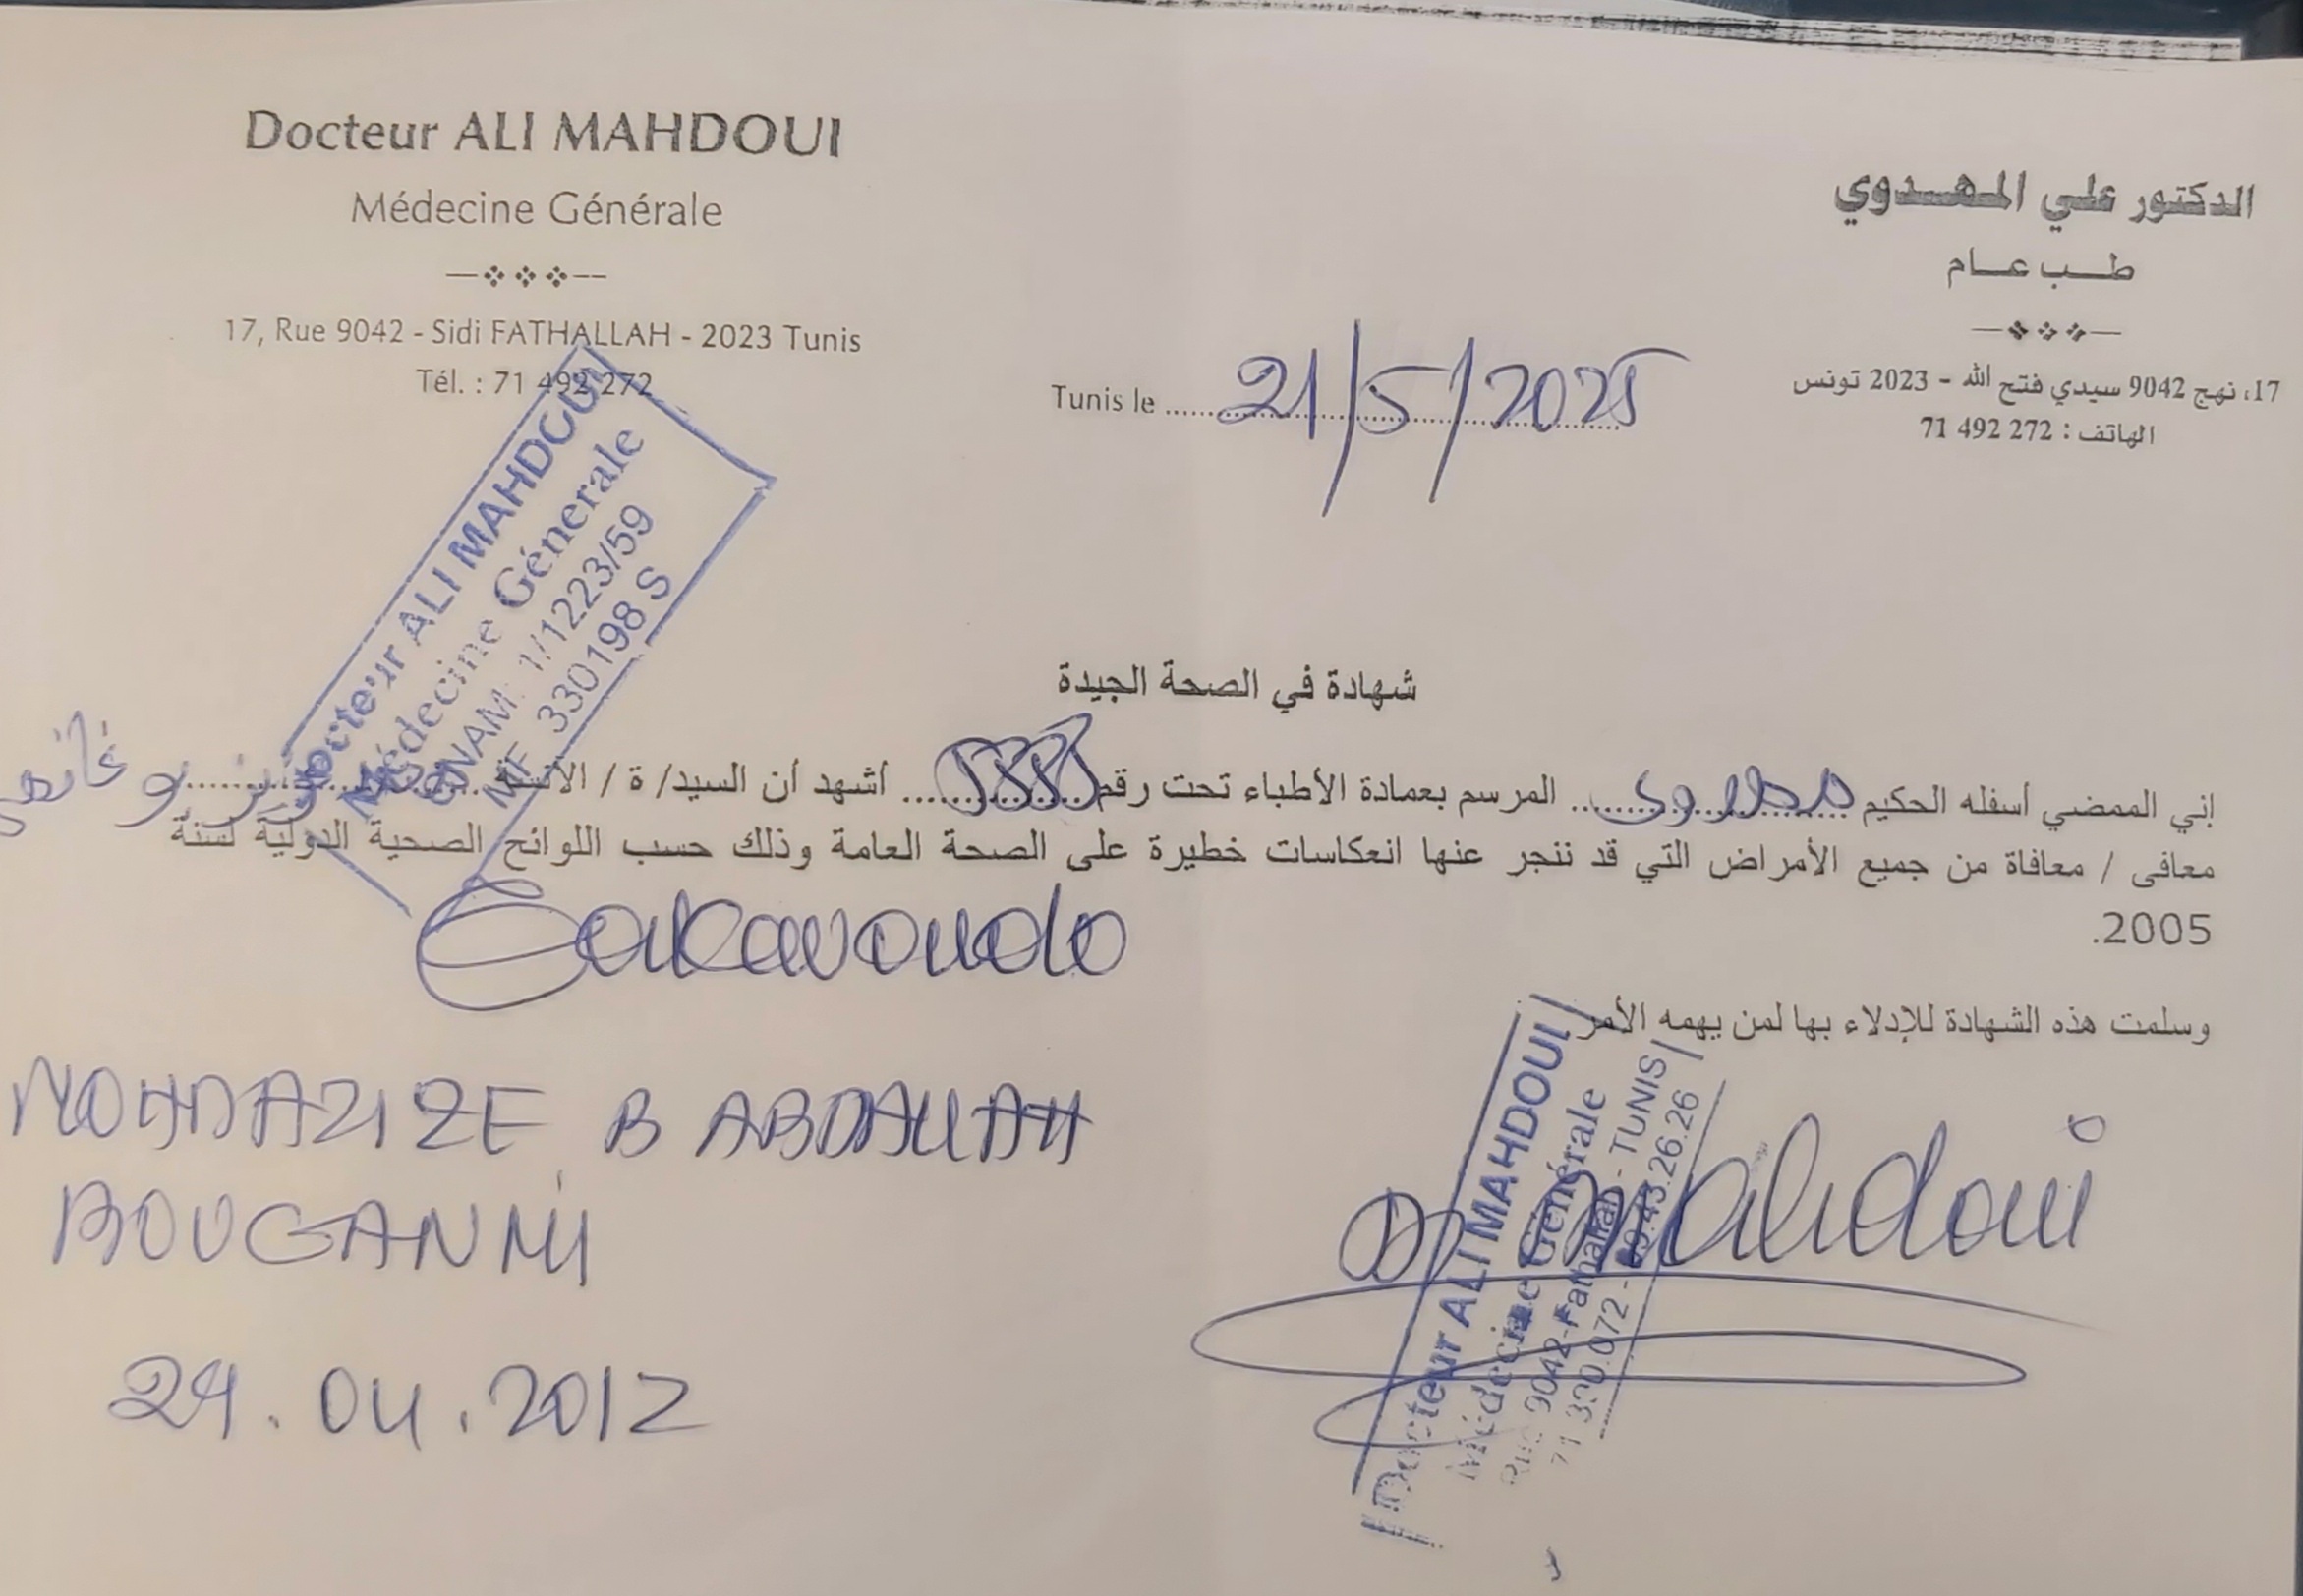 Docteur ALI MAHDOUI
Médecine Générale
17, Rue 9042 - Sidi FATHALLAH - 2023 Tunis
Tél. : 71 492 272
الدكتور علي المهدوي
طب عام
17، نهج 9042 سيدي فتح الله - 2023 تونس
الهاتف : 272 492 71
Tunis le 21/5/2025
Docteur ALI MAHDOUI
Médecine Génerale
CNAM: 1/1223/59
MF 330198 S
شهادة في الصحة الجيدة
إني الممضي أسفله الحكيم مهدوي المرسم بعمادة الأطباء تحت رقم أشهد أن السيد/ ة / الآنسة بوغانمي
معافى / معافاة من جميع الأمراض التي قد تنجر عنها انعكاسات خطيرة على الصحة العامة وذلك حسب اللوائح الصحية الدولية لسنة
2005.
وسلمت هذه الشهادة للإدلاء بها لمن يهمه الأمر
MOHDAZIZE B ABDALLAH
BOUGANMI
24.04.2012
Docteur ALI MAHDOUI
Médecine Générale
Rue 9042-Fathallah - TUNIS
Mahdoui